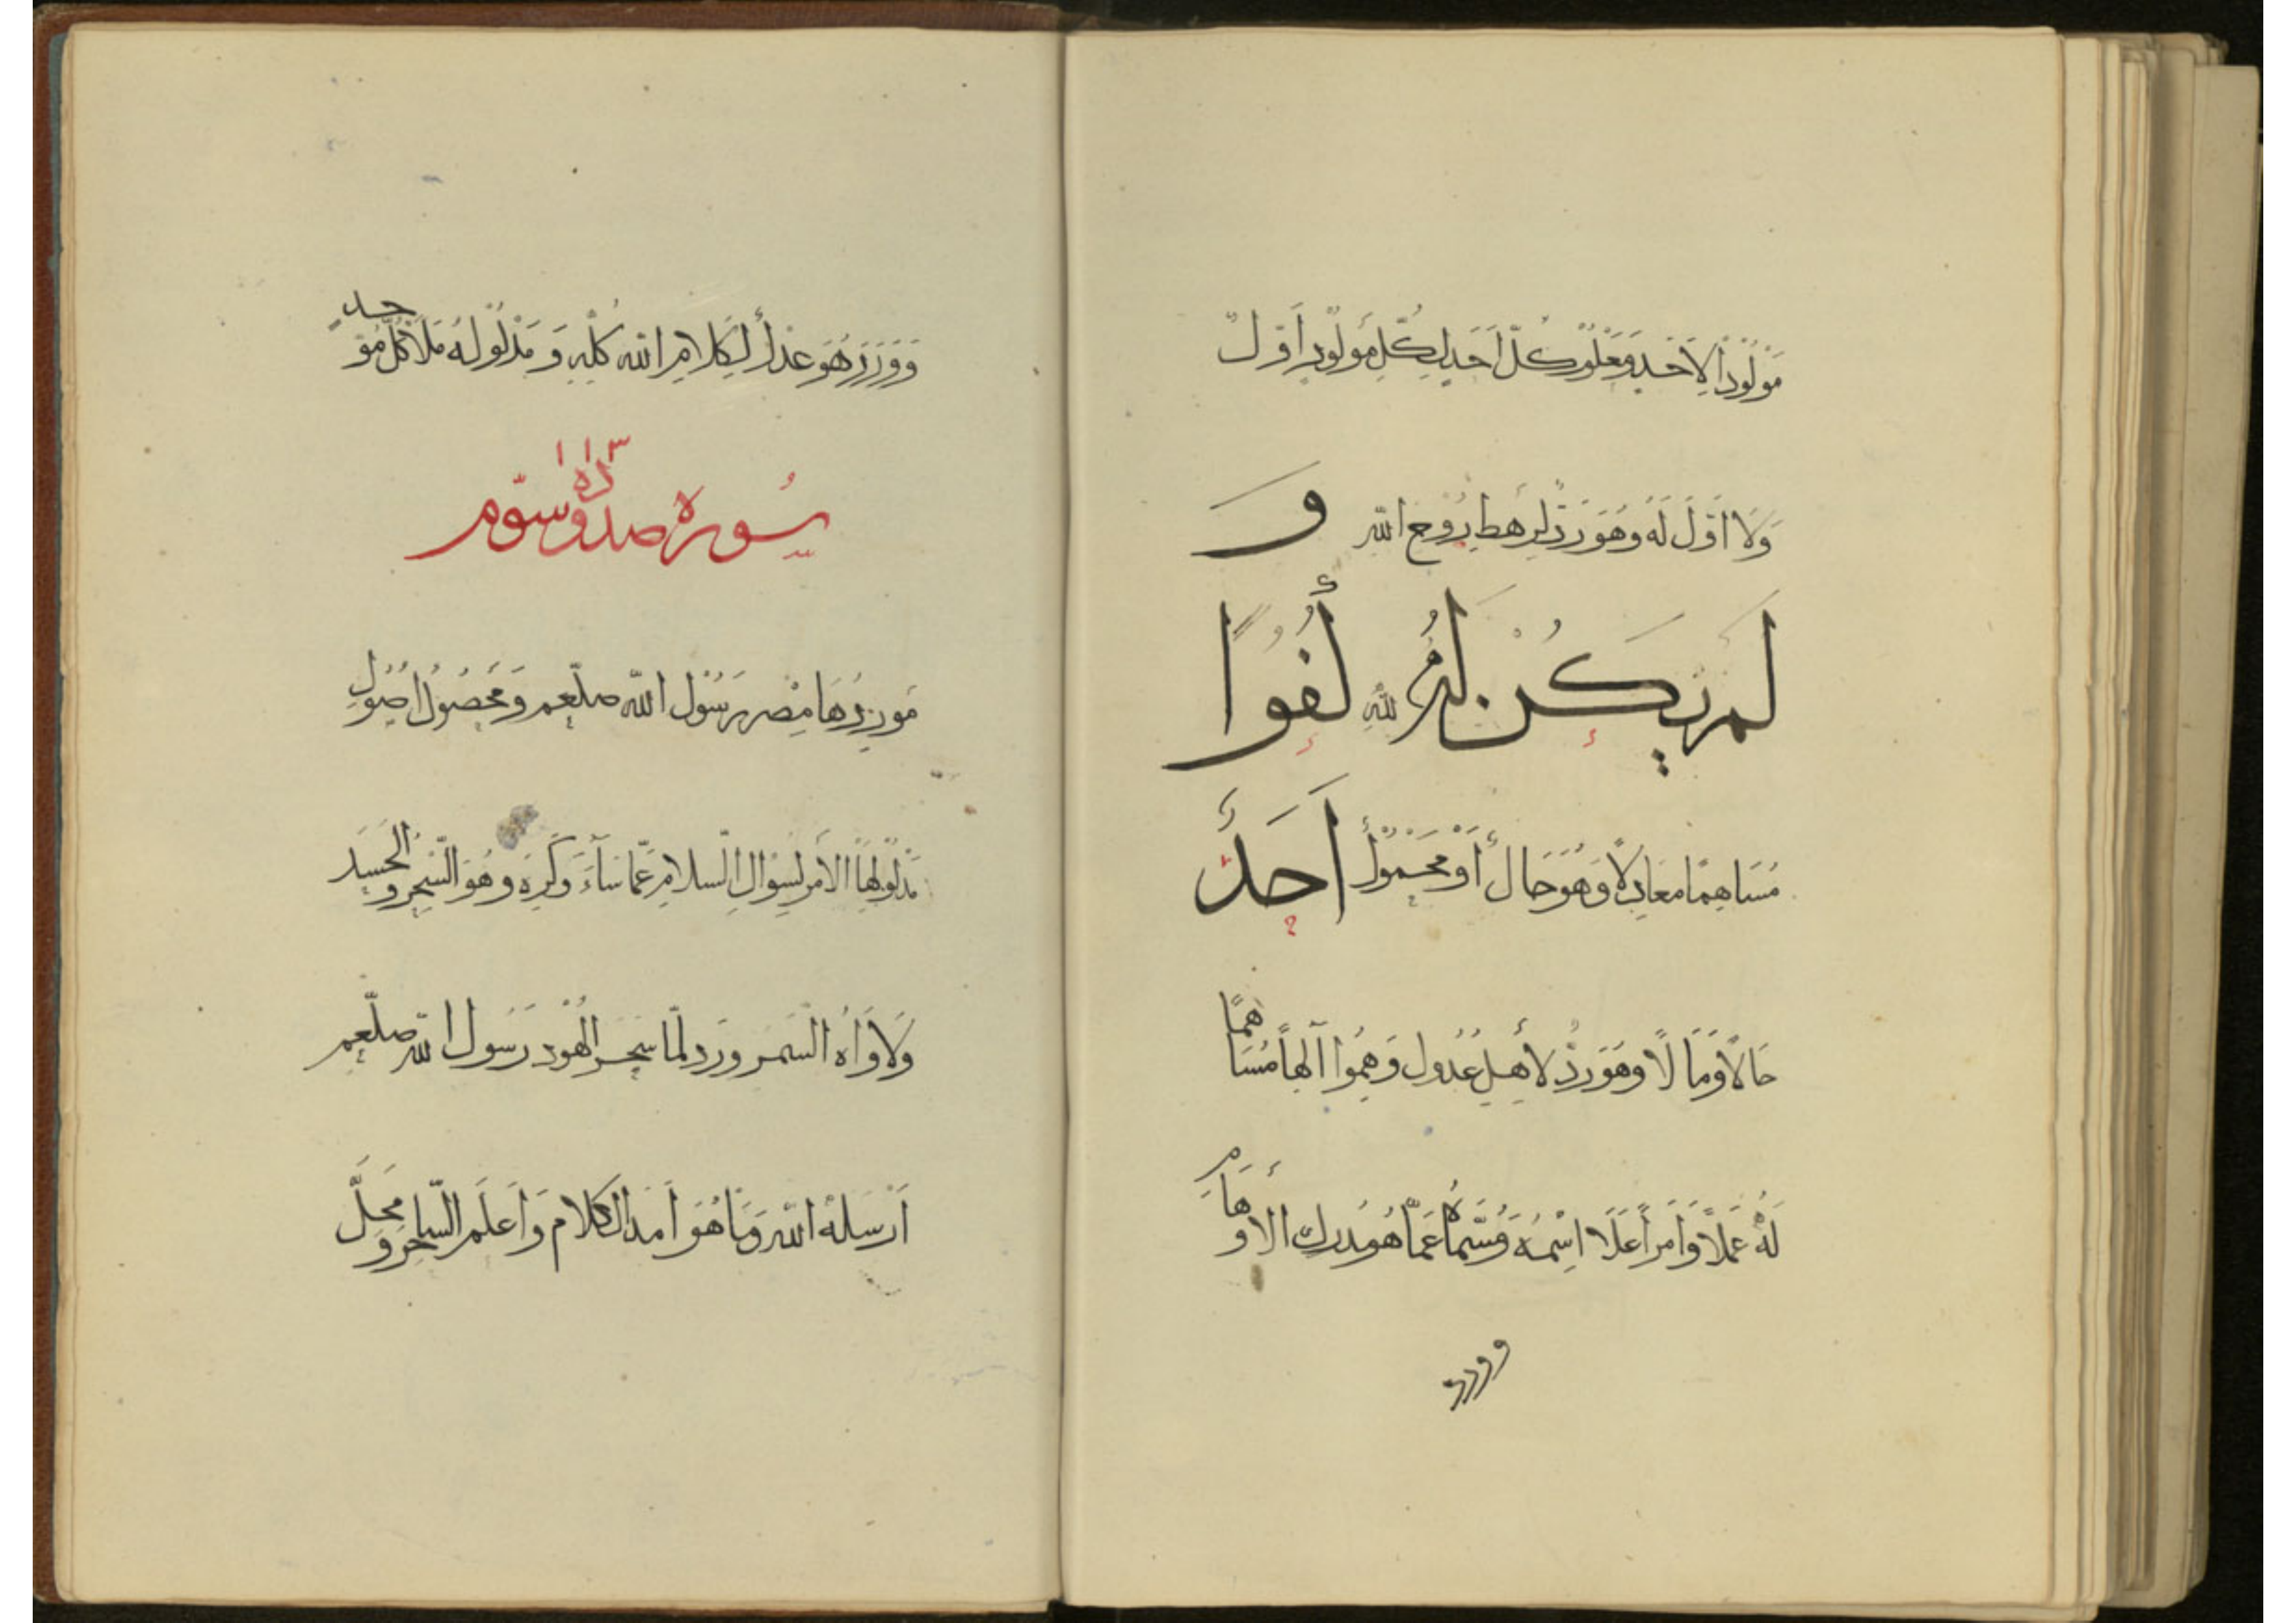 مَوْلُوْدًا لِاَحَدٍ وَمَعْلُوْمٌ كُلُّ اَحَدٍ لِكُلِّ مَوْلُوْدٍ اَوَّلٌ
وَلَا اَوَّلَ لَهٗ وَهُوَ رَدٌّ لِرَهْطِ رُوْحِ اللّٰهِ وَ
لَمْ يَكُنْ لَهٗ لِلّٰهِ كُفُوًا
مُسَاهِمًا مُعَادِلًا وَهُوَ حَالٌ أَوْ مَحْمُوْلٌ اَحَدٌ
حَالًا وَمَالًا وَهُوَ رَدٌّ لِأَهْلِ عُدُولٍ وَهِمُوا آلِهاً مُسَاهِمًا
لَهٗ عَمَلًا وَاَمراً عَلَا اِسْمُهٗ وَسُمَّاهُ عَمَّا هُوَ مُدْرَكُ الأوهام
وورد
وَوَرَدَ هُوَ عِدْلٌ لِكَلَامِ اللّٰهِ كُلِّهِ وَ مَدْلُوْلُهٗ مَلَاكُ كُلِّ مُوَحِّدٍ
سُوره
مَوْرِدُهَا مِصْرُ رَسُوْلِ اللّٰه صلّعم وَمَحْصُوْلُ اُصُوْلِ
مَدْلُوْلِهَا الأَمْرُ لِسُوَالِ السَّلامِ عَمَّا سَآءَ وَكُرِهَ وَهُوَ السِّحْرُ وَ الحَسَدُ
وَلَاوَاهُ السَّمَرُ وَرَدَ لَمَّا سَحَرَ الْهُوْدُ رَسُولَ اللّٰه صلّعم
اَرْسَلَهُ اللّٰهُ وَمَا هُوَ اَمَدُ الكَلام وَاَعلَمَ السَّاحِرَ وَ مَحَلَّ